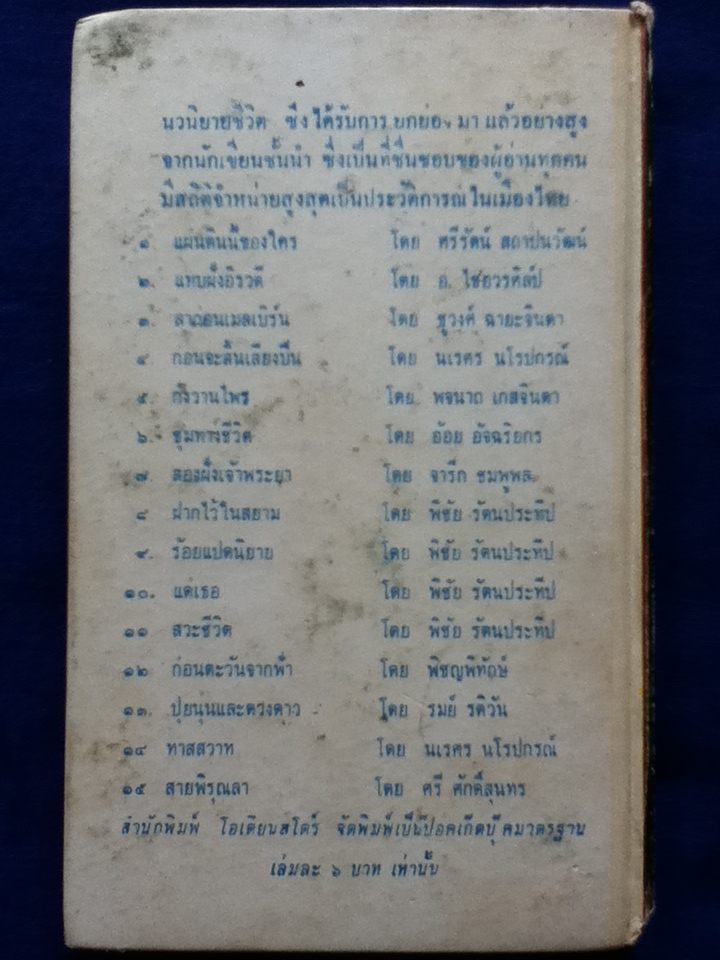 นวนิยายชีวิต ซึ่งได้รับการ ยกย่อง มา แล้วอย่างสูง
จากนักเขียนชั้นนำ ซึ่งเป็นที่ชื่นชอบของผู้อ่านทุกคน
มีสถิติจำหน่ายสูงสุดเป็นประวัติการณ์ในเมืองไทย
๑. แผ่นดินนี้ของใคร โดย ศรีรัตน์ สถาปนวัฒน์
๒. แทบฝั่งอิรวดี โดย อ. ไชยวรศิลป์
๓. ลาก่อนเมลเบิร์น โดย ชูวงศ์ ฉายะจินดา
๔ ก่อนจะสิ้นเสียงปืน โดย นเรศร นโรปกรณ์
๕. กังวานไพร โดย พจนาถ เกสจินดา
๖. ชุมทางชีวิต โดย อ้อย อัจฉริยกร
๗. สองฝั่งเจ้าพระยา โดย จารึก ชมพูพล
๘ ฝากไว้ในสยาม โดย พิชัย รัตนประทีป
๙. ร้อยแปดนิยาย โดย พิชัย รัตนประทีป
๑๐. แด่เธอ โดย พิชัย รัตนประทีป
๑๑ สวะชีวิต โดย พิชัย รัตนประทีป
๑๒ ก่อนตะวันจากฟ้า โดย พิชญพิทักษ์
๑๓. ปุยนุ่นและดวงดาว โดย รมย์ รติวัน
๑๔ ทาสสวาท โดย นเรศร นโรปกรณ์
๑๕ สายพิรุณลา โดย ศรี ศักดิ์สุนทร
สำนักพิมพ์ โอเดียนสโตร์ จัดพิมพ์เป็นปอคเก็ตบุ๊คมาตรฐาน
เล่มละ ๖ บาท เท่านั้น